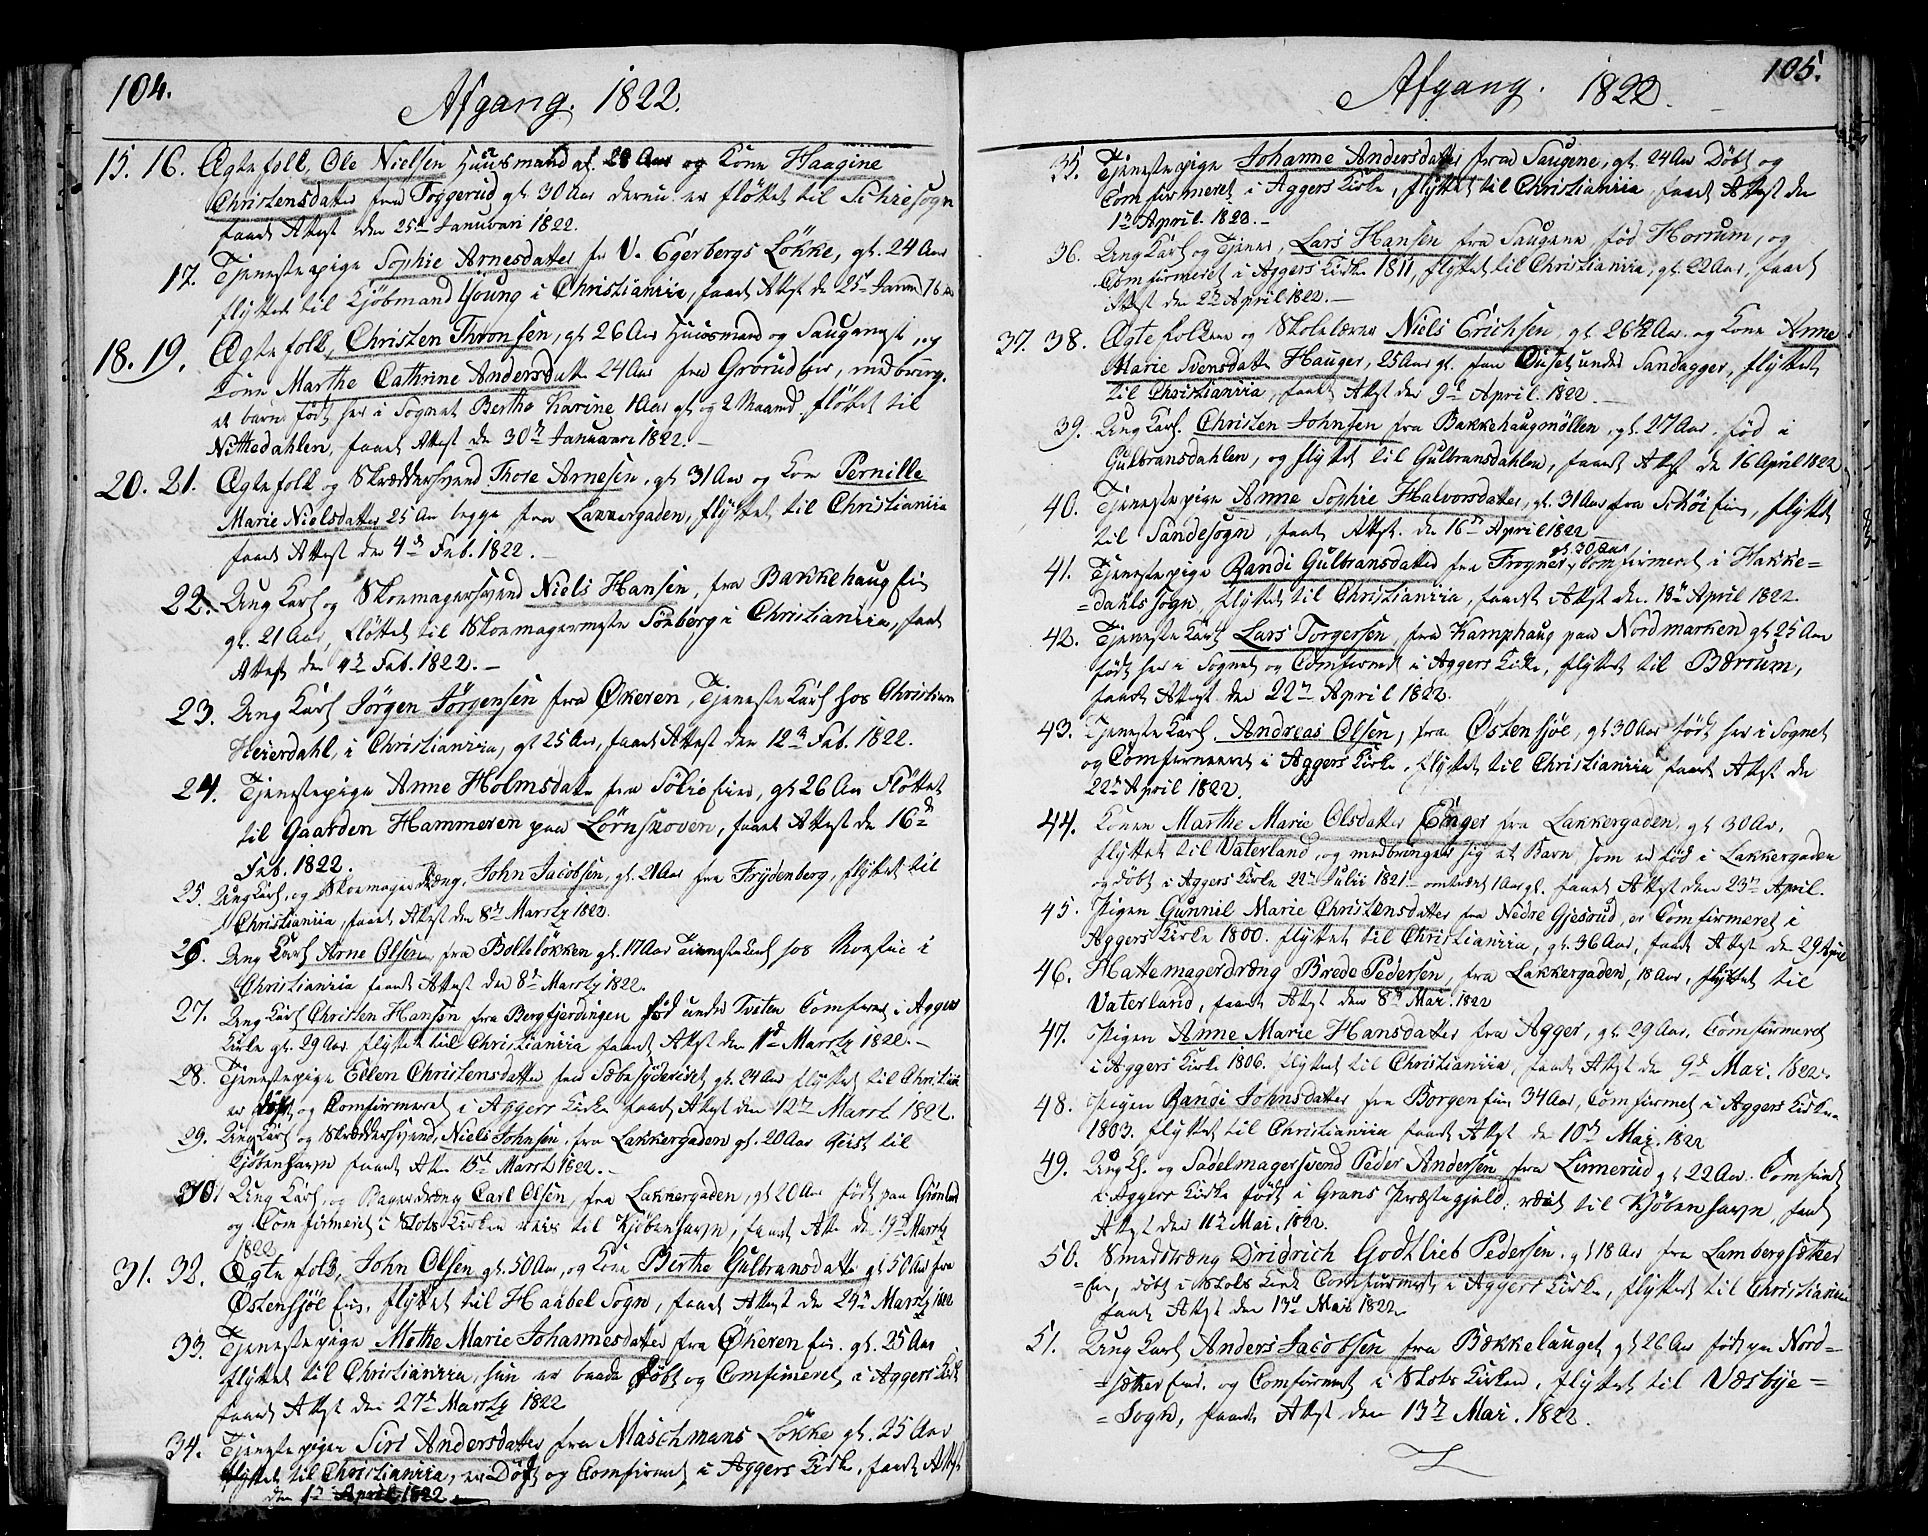 104.
Afgang. 1822.
15. 16. Ægtefolk, Ole Nielsen Huusmand gl. 28 Aar og Kone Haagine
Christensdatter fra Foggerud gl. 30 Aar er fløttet til Schiesogn
faaet Attest den 25de Januari 1822.
17. Tjenestepige Sophie Arnesdatter fra V. Egerbergs Løkke, gl. 24 Aar
flyttet til Kjøbmand Young i Christiania, faaet Attest de 25de Janu
18. 19. Ægtefolk, Christen Thronsen, gl 26 Aar Huusmand og Saugmest og
Kone Marthe Cathrine Andersdatt 24 Aar fra Grorud Eie, medbring.
et barn født her i Sognet Berthe Karine 1 Aar gl og 2 Maand fløttet til
Nittedahlen, faaet Attest de 30te Januari 1822.
20. 21. Ægtefolk og Skræddersvend Thore Arnesen, gl 31 Aar og Kone Pernille
Marie Nielsdatter 25 Aar begge fra Lakkergaden, flyttet til Christiania
faaet Attest den 4de Feb. 1822.
22. Ung Karl og Skomagersvend Niels Hansen, fra Bakkehaug Eie
gl. 21 Aar, fløttet til Skomagermester Sonberg i Christiania, faaet
Attest den 4de Feb. 1822.
23. Ung Karl Jørgen Jørgensen fra Økeren, Tjeneste Karl hos Christian
Heierdahl, i Christiania, gl 25 Aar, faaet Attest den 12te Feb. 1822.
24. Tjenestepige Anne Holmsdatt fra Solie Eie, gl 26 Aar Fløttet
til Gaarden Hammeren paa Lørnskoven, faaet Attest de 16de
Feb. 1822.
25. Ung Karl, og Skomager Dræng, John Jacobsen, gl. 21 Aar fra Frydenberg, flyttet til
Christiania, faaet Attest den 8de Marsty 1822.
26. Ung Karl Arne Olsen fra Boltelökken gl. 17 Aar Tienestekarl hos i
Christiania faaet Attest den 8de Marsty 1822.
27. Ung Karl Christen Hansen fra Bergfjerdingen fød under Tveten Comfirmert i Aggers
Kirke gl. 29 Aar flyttet til Christiania faaet Attest den 11te Marsty 1822.
28. Tjenestepige Ellen Christensdatte fra Sæbesyderiet gl. 24 Aar flyttet til Christiania
er døbt og Comfirmeret i Aggers Kirke faaet Attest den 12te Marst 1822.
29. Ung Karl og Skræddersvend, Niels Johnsen, fra Lakkergaden gl. 20 Aar Reist til
Kjøbenhavn faaet Atte 15de Marst 1822.
30. Ung Karl, og Bagerdræng Carl Olsen, fra Lakkergaden, gl 20 Aar født paa Grønland
og Comfirmeret i Slots Kirken reis til Kjøbenhavn, faaet Atte de 19de Marsty
1822
31. 32. Ægte folk, John Olsen gl. 50 Aar, og Kone Berthe Gulbransdatte gl 50 Aar fra
Østensjøe Eie, flyttet til Haabel Sogn, faaet Attest de 24de Marsty 1822
33. Tjenestepige Mothe Marie Johannesdatter fra Økeren Eie. gl. 25 Aar
flyttet til Christiania, hun er baade Døbt og Comfimeret i Aggers Kirke
faaet Attest den 27de Marsty 1822
34. Tjenestepigen Siri Andersdatter fra Maschmans Løkke gl. 25 Aar
flyttet til Christiania, er Døbt og Comfirmet i Aggers Kirke, faaet Attest
den 1te April 1822
105.
Afgang. 1822.
35. Tjenestepige Johanne Andersdatter fra Saugene, gl. 24 Aar Døbt og
Comfirmeret i Aggers Kirke, flyttet til Christiania, faaet Attest den
1te April. 1822.
36. Ung Karl og Tjener, Lars Hansen fra Saugene, fød Horrum, og
Comfirmeret i Aggers Kirke 1811, flyttet til Christiania, gl. 22 Aar, faaet
Attest den 2de April 1822.
37. 38. Ægte folkene og Skolelærer Niels Erichsen, gl. 26½ Aar. og Kone Anne
Marie Svensdatte Hauger, 25 Aar gl. fra under Sandagger, flyttet
til Christiania, faaet Attest den 9de April. 1822.
39. Ung Karl. Christen Johnsen fra Bakkehaugmöllen, gl. 27 Aar, fød i
Gulbransdahlen, og flyttet til Gulbransdahlen, faaet Attest de 16 April 1822
40. Tjenestepige Anne Sophie Halvorsdatter, gl. 31 Aar fra Schøi Eie, flyttet
til Sandesogn, faaet Attest. de 16te April 1822
41. Tjenestepige Randi Gulbransdatter fra Frogner, gl. 30 Aar Comfirmeret i Hakke=
=dahls Sogn, flyttet til Christiania, faaet Attest den 18de April 1822.
42. Tjeneste Karl Lars Torgersen, fra Kamphaug paa Nordmarken gl 25 Aar
født her i Sognet og Comfirmet i Aggers Kirke, flyttet til Bærrum,
faaet Attest den 22de April 1822.
43. Tjeneste Karl. Andreas Olsen, fra Østensjøe, gl 30 Aar født her i Sognet
og Comfirmeret i Aggers Kirke, flyttet til Christiania faaet Attest de
22de April 1822.
44. Konen Marthe Marie Olsdatter Enger fra Lakkergaden, gl 30 Ar.
flyttet til Vaterland, og medbringer sig et Barn, som er fød i Lakkergaden
og døbt i Aggers Kirke 22de Julii 1821 omtrent 1 Aar gl. faaet Attest den 23de April.
45. Pigen Gunnil Marie Christensdatter fra Nedre Gjesrud, er Comfirmeret i
Aggers Kirke 1800. flyttet til Christiania, gl. 36 Aar, faaet Attest de 29 April
46. Hattemagerdræng Brede Pedersen, fra Lakkergaden, 18 Aar, flyttet til
Vaterland, faaet Attest den 8de Mai. 1822
47. Pigen Anne Marie Hansdatter fra Agger, gl. 29 Aar. Comfirmeret
i Aggers Kirke 1806. flyttet til Christiania, faaet Attest de 9de Mai. 1822.
48. Pigen Randi Johnsdatter fra Borgen Eie 34 Aar, Comfirmet i Aggers Kirke
1803. flyttet til Christiania faaet Attest de 10de Mai. 1822
49. Ung K. og Sadelmagersvend Peder Andersen fra Linnerud gl 22 Aar. Comfirmet
i Aggers Kirke født i Grans Præstegjeld, reist til Kjøbenhavn, faaet
Attest den 11te Mai. 1822.
50. Smeddræng Dridrich Godtlieb Pedersen. gl 18 Aar fra Lambergsæther
Eie, døbt i Slots Kirk Comfirmert i Aggers Kirke, flyttet til Christiania
faaet Attest den 13de Mai 1822
51. Ung Karl Anders Jacobsen fra Bækkelauget gl 26 Aar født paa Nord=
=sæther Eie. og Comfirmet i Slots Kirken, flyttet til Næsbye=
=Sogn, faaet Attest den 13de Mai. 1822.